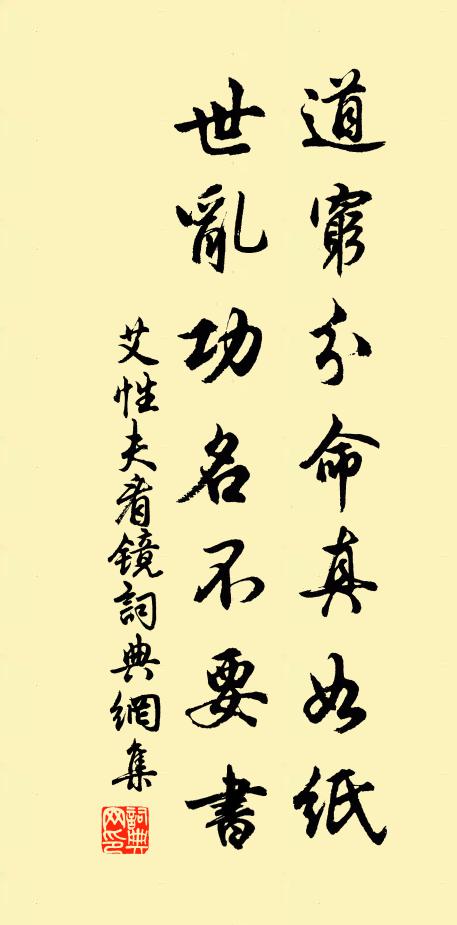 道窮分命真如紙
世亂功名不要書
艾性夫看镜詞典網集
詞典
网印